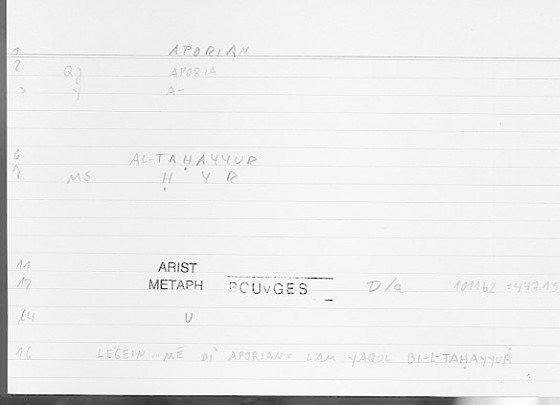 1 APORIAN
2 Qj APORIA
3 y A-
6 AL-TAḤAYYUR
MS Ḥ Y R
11 ARIST
METAPH BOUYGES D/a 1011b2 = 447.15
14 U
16 LEGEIN...MĒ DI' APORIAN = LAM YAQUL BI-L-TAḤAYYUR